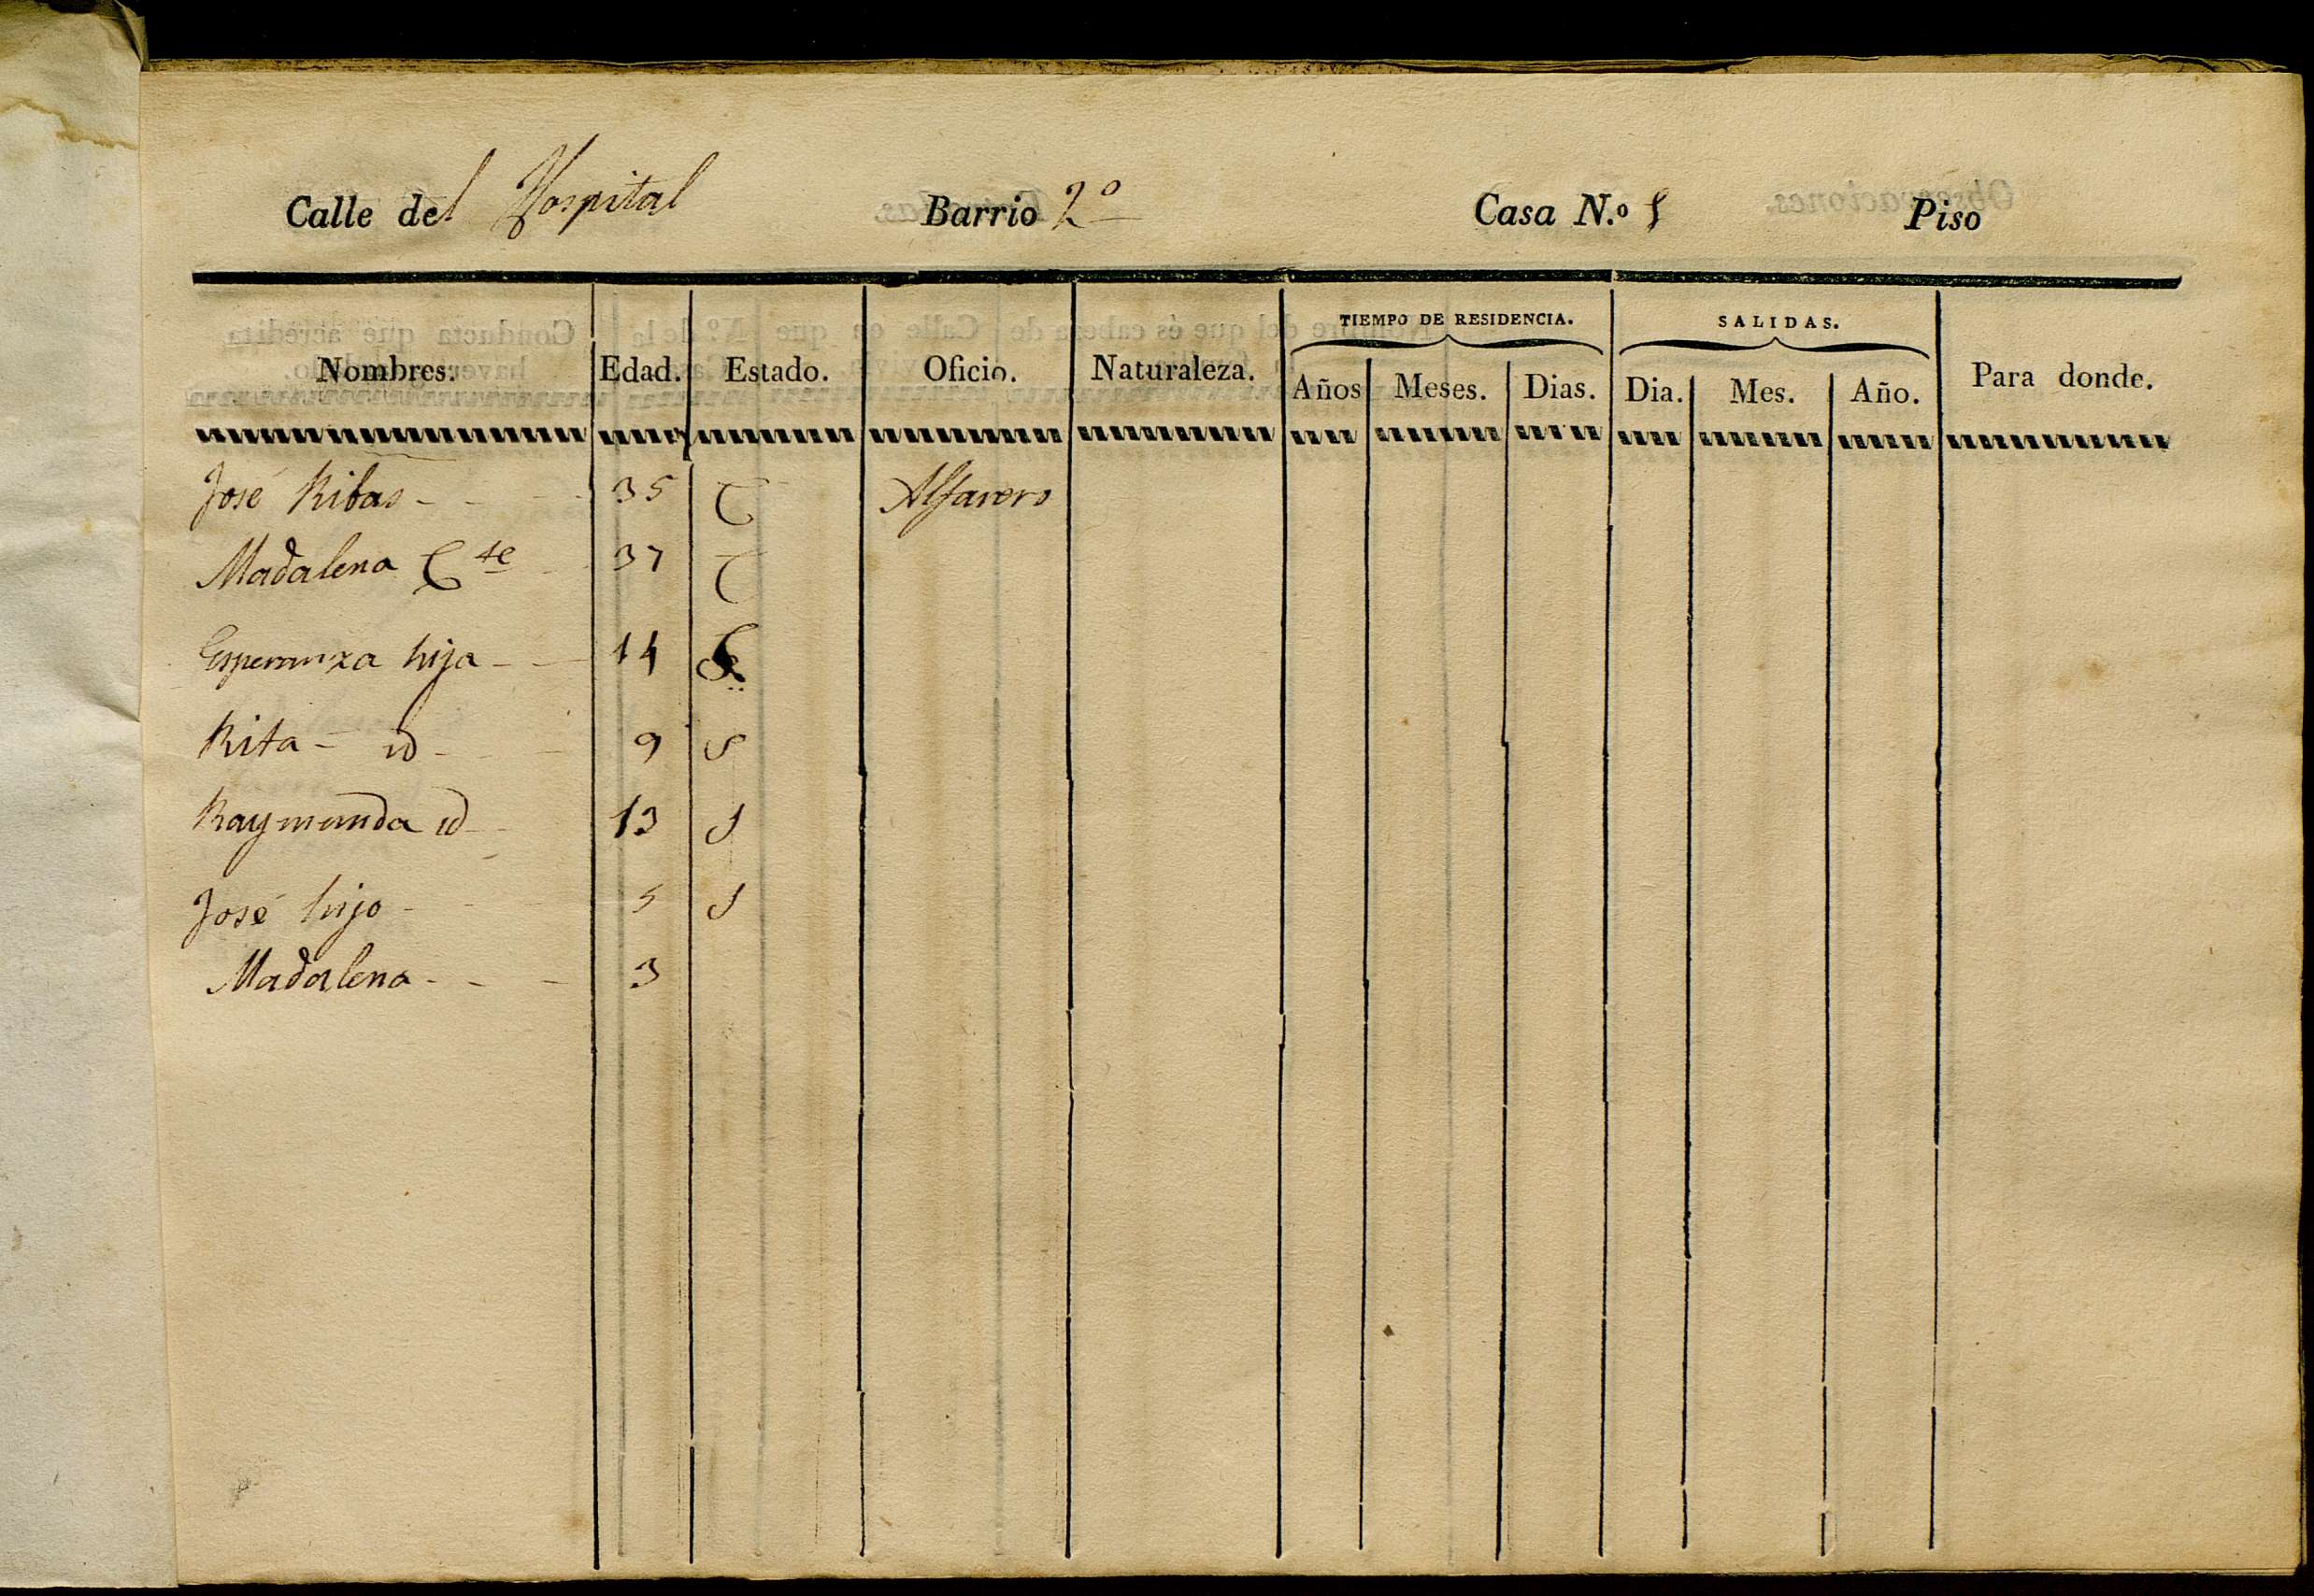 Calle del Hospital Barrio 2º Casa N.º Piso
TIEMPO DE RESIDENCIA. SALIDAS.
Nombres. Edad. Estado. Oficio. Naturaleza. Años Meses. Dias. Dia. Mes. Año. Para donde.
José Ribas - - - 35 C Alfarero
Madalena C te 37 C
Esperanza hija - - 14
Rita - id - - 9 S
Raymunda id - 13 S
José hijo - - - 5 S
Madalena - - - 3